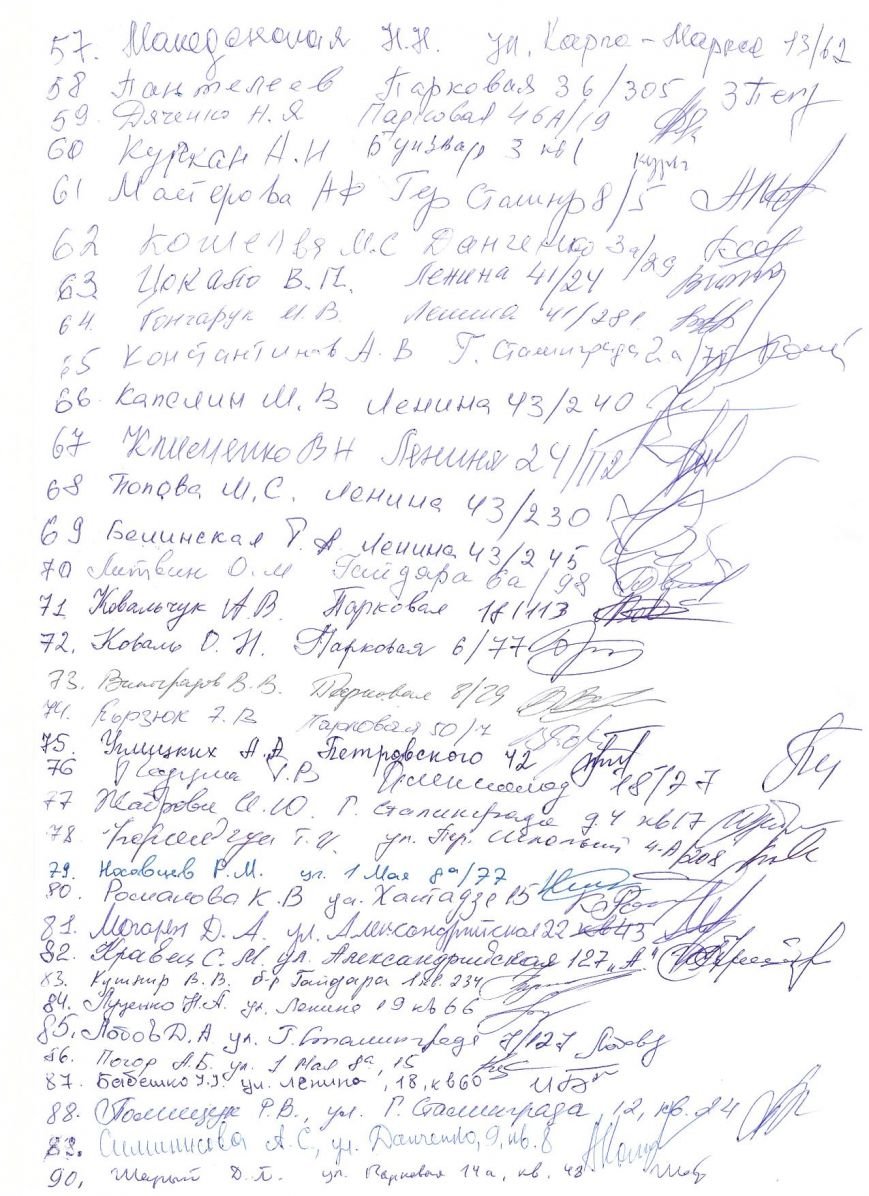 57. Македонская Н.Н. ул. Карла-Маркса 13/62
58 Пантелеев Парковая 36/305
59. Дяченко Н.Я Парковая 46А/19
60 Куркан А.Н Бульвар 3 кв1
61 Мастерова АФ Гер Сталингр 8/5
62 Кошелева М.С Данченко 3а/29
63 Цокато В.П. Ленина 41/24
64. Гончарук И.В. Ленина 41/281
65 Константинов А.В Г. Сталинграда 2а/75
66 Капелин М.В Ленина 43/240
67 Клименко ВН Ленина 24/112
68 Попова М.С. Ленина 43/230
69 Белинская Т.А Ленина 43/245
70 Литвин О.М Гайдара 6а/98
71 Ковальчук А.В. Парковая 18/113
72. Коваль О.Н. Парковая 6/77
73. Виноградов В.В. Парковая 8/29
74. Кырзюк Парковая 50/7
75. Углицких А.А Петровского 42
76 Г.В 18/77
77 И.Ю. Г. Сталинграда д.4 кв17
78 Т.И. ул. Пер. 4-А/208
79. Носовцев Р.М. ул. 1 Мая 8а/77
80. Романова К.В ул. Хатадзе 15
81. Могарян Д.А. ул. Александрийская 22 43
82. Кравец С.М. ул. Александрийская 127 „А"
83. Кушнир В.В. б-р Гайдара 1 кв. 234
84. Луценко Н.А. ул. Ленина 19 кв 66
85. Лобов Д.А ул. Г. Сталинграда 7/127
86. Погор А.Б. ул. 1 Мая 8а, 15
87. Бабешко ул. Ленина, 18, кв60
88. Полищук Р.В., ул. Г. Сталинграда, 12, кв. 24
89. А.С., ул. Данченко, 9, кв. 8
90, Шерый Д.П. ул. Парковая 14а, кв. 43